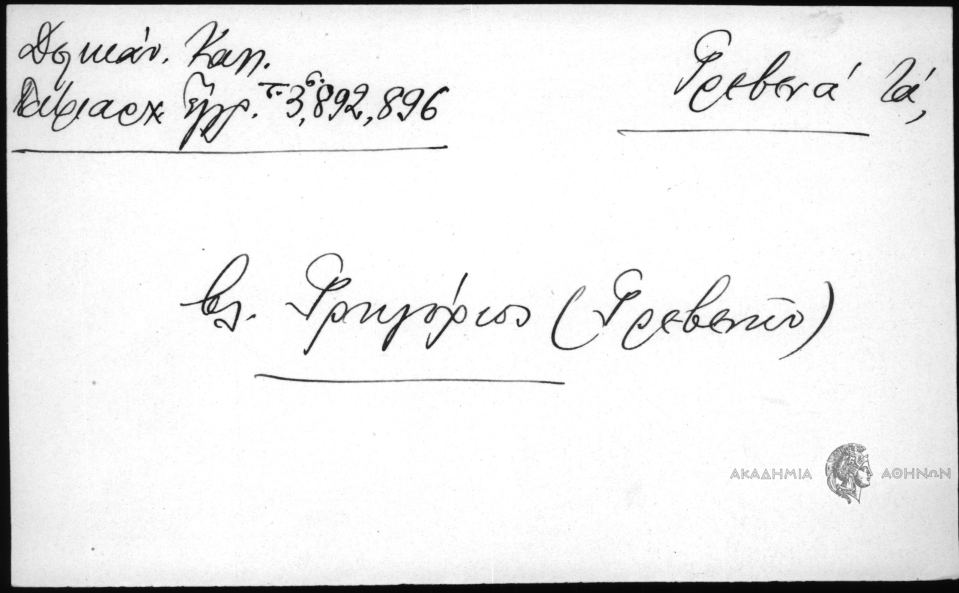 Δελικάν. Καλ.
Πατριαρχ. Ἔγγρ. τ. 3, 892, 896
Γρεβενά τά,
βλ. Γρηγόριος (Γρεβενῶν)
ΑΚΑΔΗΜΙΑ ΑΘΗΝΩΝ